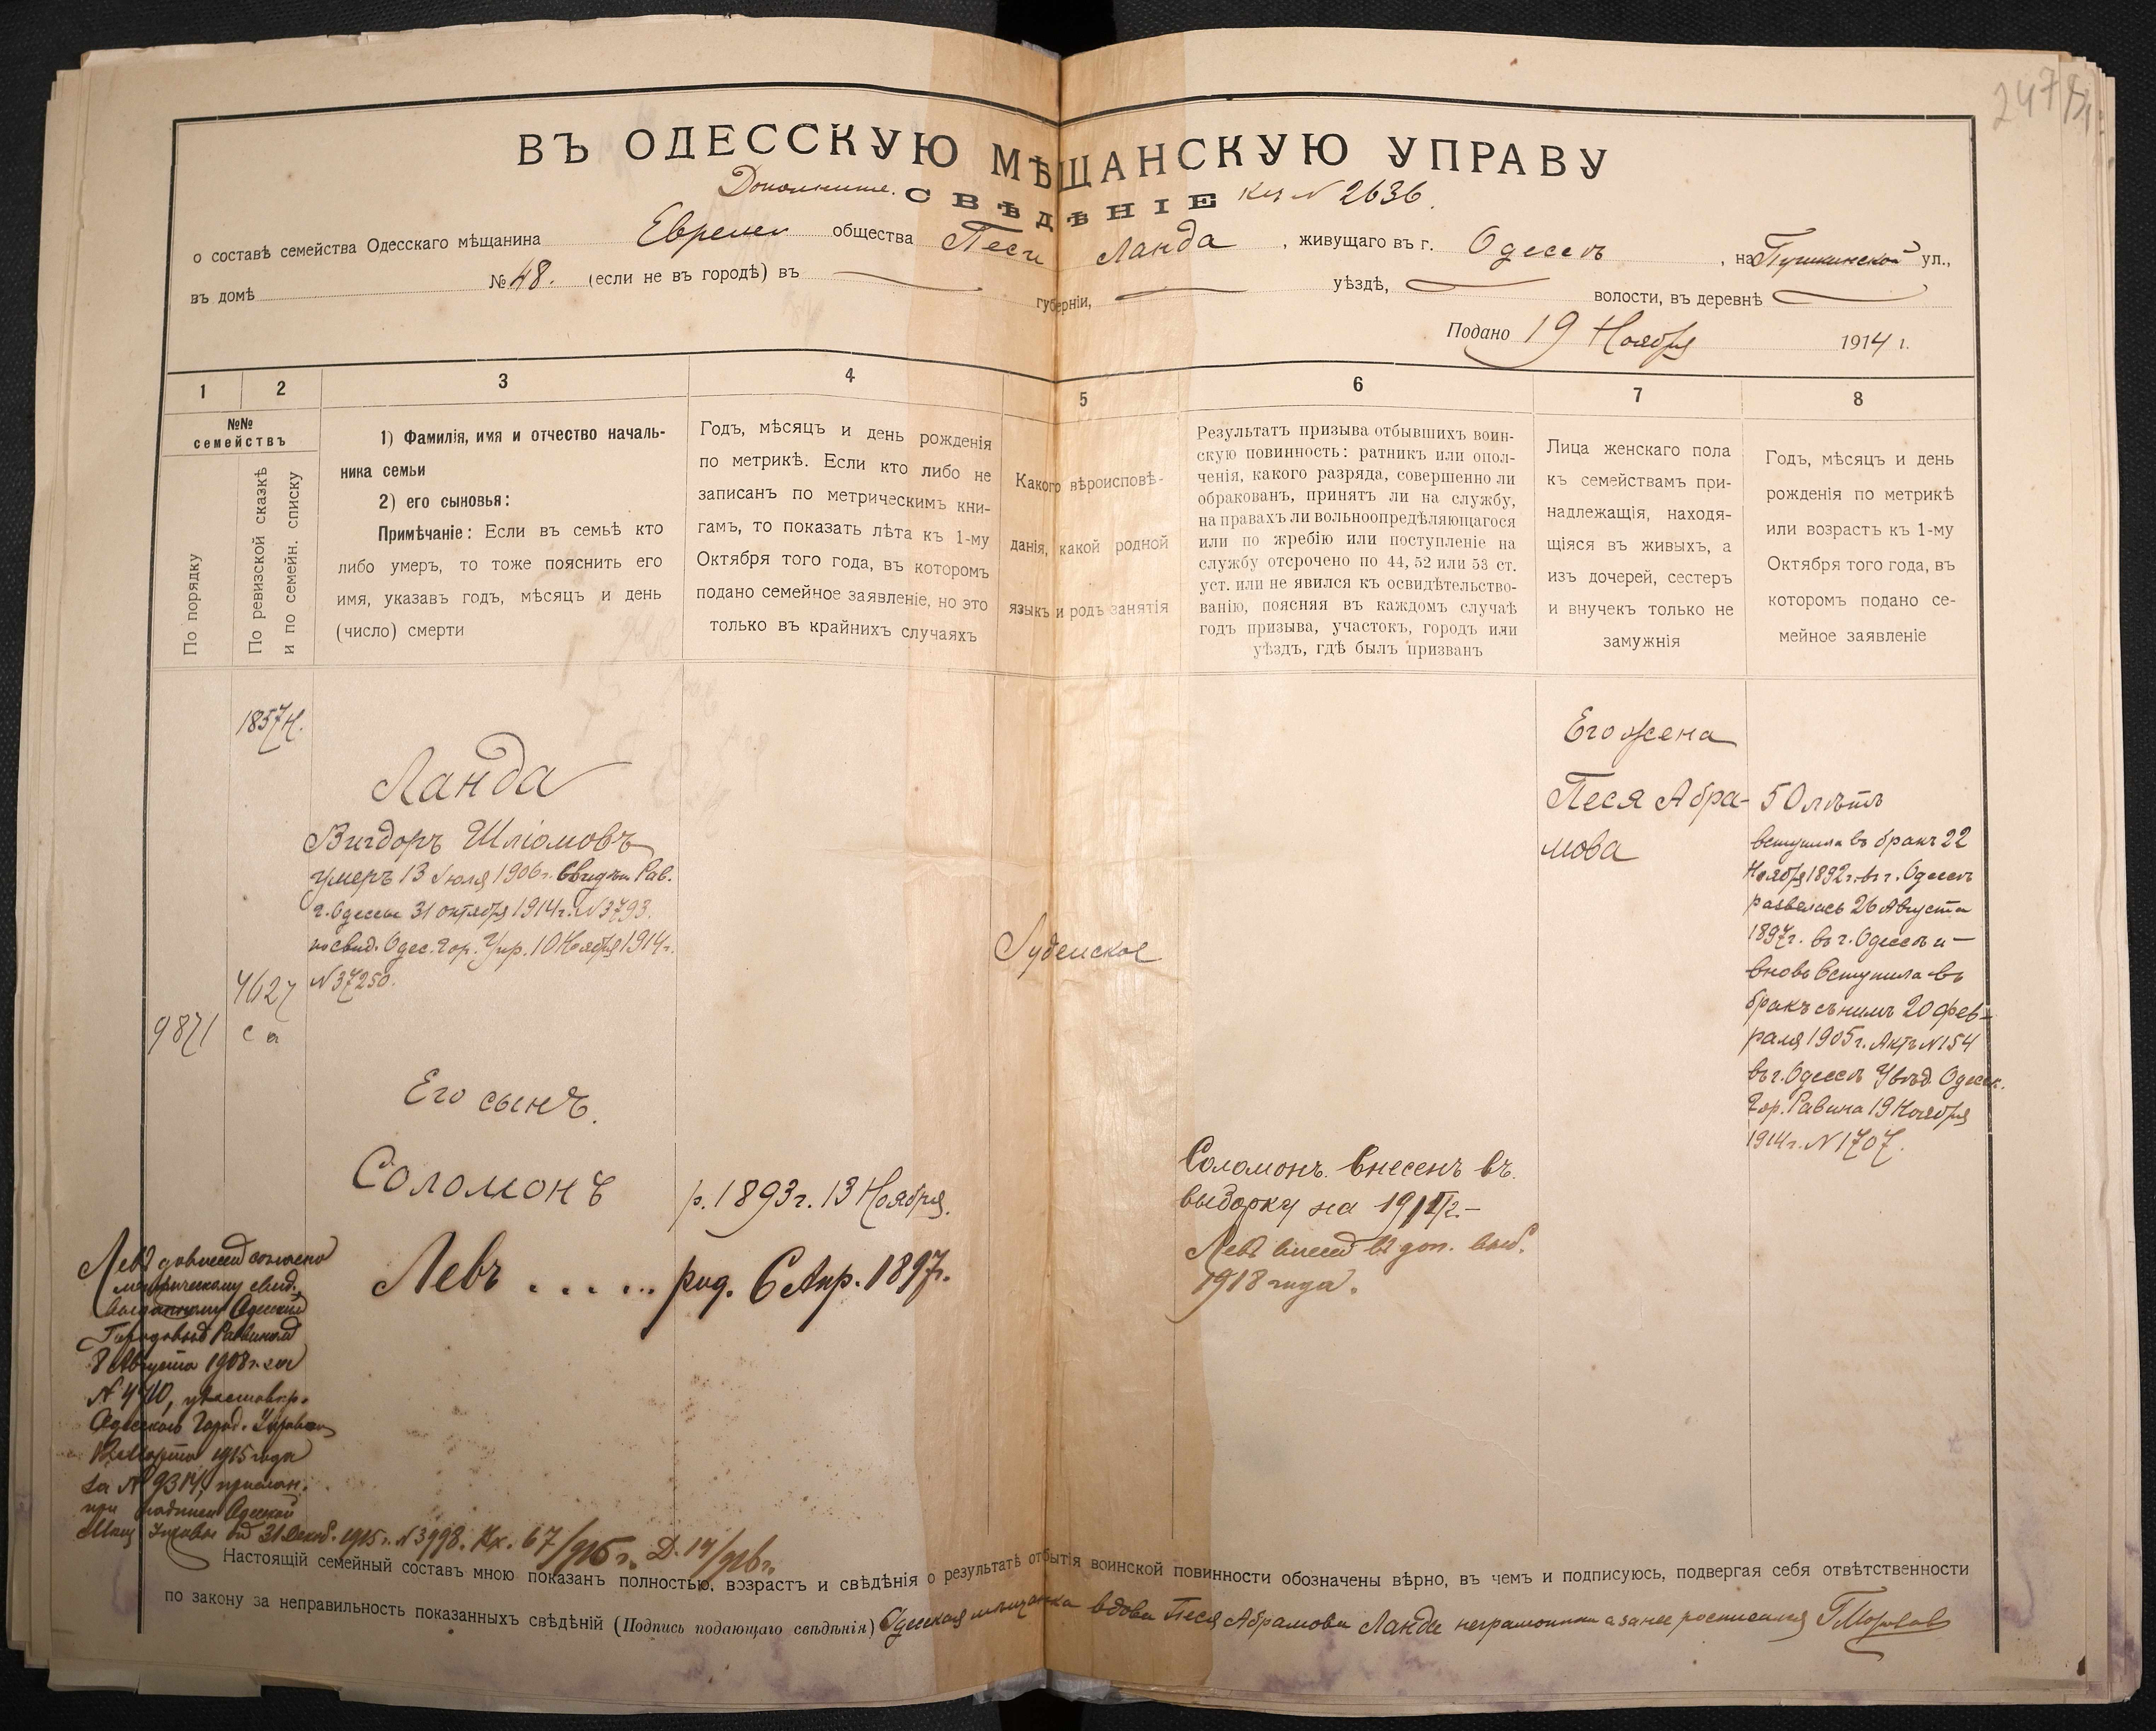 247
ВЪ ОДЕССКУЮ МѢЩАНСКУЮ УПРАВУ
Дополните. СВѢДѢНІЕ къ № 2636.
о составѣ семейства Одесскаго мѣщанина Евреи общества Песи Ланда, живущаго въ г. Одессѣ, на Пушкинской ул.,
въ домѣ № 48. (если не въ городѣ) въ губерніи, уѣздѣ, волости, въ деревнѣ
Подано 19 Ноября 1914 г.
1 2 3 4 5 6 7 8
№№
семействъ
По порядку
По ревизской сказкѣ
и по семейн. списку
1) Фамилія, имя и отчество началь-
ника семьи
2) его сыновья:
Примѣчаніе: Если въ семьѣ кто
либо умеръ, то тоже пояснить его
имя, указавъ годъ, мѣсяцъ и день
(число) смерти
Годъ, мѣсяцъ и день рожденія
по метрикѣ. Если кто либо не
записанъ по метрическимъ кни-
гамъ, то показать лѣта къ 1-му
Октября того года, въ которомъ
подано семейное заявленіе, но это
только въ крайнихъ случаяхъ
Какого вѣроисповѣ-
данія, какой родной
языкъ и родъ занятія
Результатъ призыва отбывшихъ воин-
скую повинность: ратникъ или опол-
ченія, какого разряда, совершенно ли
обракованъ, принятъ ли на службу,
на правахъ ли вольноопредѣляющагося
или по жребію или поступленіе на
службу отсрочено по 44, 52 или 53 ст.
уст. или не явился къ освидѣтельство-
ванію, поясняя въ каждомъ случаѣ
годъ призыва, участокъ, городъ или
уѣздъ, гдѣ былъ призванъ
Лица женскаго пола
къ семействамъ при-
надлежащія, находя-
щіяся въ живыхъ, а
изъ дочерей, сестеръ
и внучекъ только не
замужнія
Годъ, мѣсяцъ и день
рожденія по метрикѣ
или возрастъ къ 1-му
Октября того года, въ
которомъ подано се-
мейное заявленіе
1857 н.
Ланда
Вигдоръ Шліомовъ
умеръ 13 Іюля 1906 г. Свидѣт. Рав.
г. Одессы 31 октября 1914 г. № 3793.
по свид. Одес. Гор. Упр. 10 Ноября 1914 г.
№ 37250.
4627
с а
9871
Его сынъ.
Соломонъ р. 1893 г. 13 Ноября.
Левъ . . . . . . род. 6 Апр. 1897 г.
Іудейское
Соломонъ внесенъ въ
выборку на 191
Левъ внесенъ въ доп. выб.
1918 года.
Его жена
Песя Абра-
мова
50 лѣтъ
вступила въ бракъ 22
Ноября 1892 г. въ г. Одессѣ
развелась 26 Августа
1897 г. въ г. Одессѣ и
вновь вступила въ
бракъ съ нимъ 20 фев-
раля 1905 г. Актъ № 154
въ г. Одессѣ Увѣд. Одесск.
Гор. Равина 19 Ноября
1914 г. № 1707.
Левъ довнесенъ согласно
метрическому свид.,
выданному Одесскимъ
Городовымъ Раввиномъ
8 Августа 1908 г. за
Одесскою Город. Управою
Марта 1915 года
за № 9314, прислан.
при Одесской
Мѣщ. Управы отъ 31 Декаб. 1915 г. № 3998. Вх. 67/916 г. Д. 14/916 г.
Настоящій семейный составъ мною показанъ полностью, возрастъ и свѣдѣнія о результатѣ отбытія воинской повинности обозначены вѣрно, въ чемъ и подписуюсь, подвергая себя отвѣтственности
по закону за неправильность показанныхъ свѣдѣній (Подпись подающаго свѣдѣнія) Одесская мѣщанка вдова Песя Абрамова Ланда неграмотная а за нее росписался